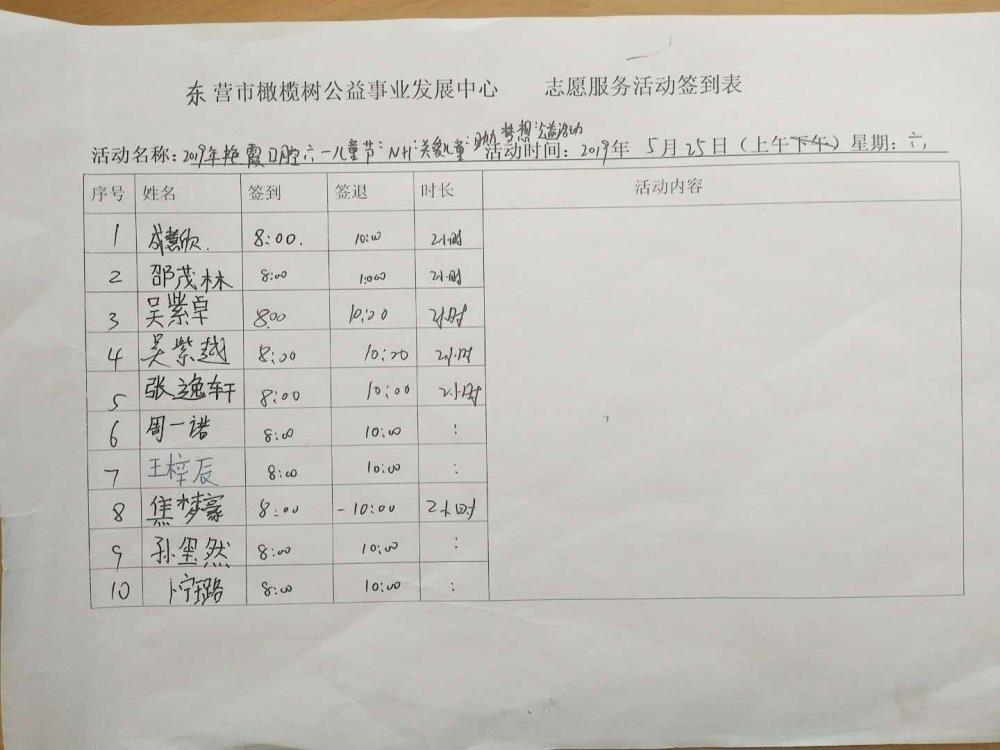 东营市橄榄树公益事业发展中心 志愿服务活动签到表
活动名称:2019年艳霞口腔六一儿童节 关爱儿童 助力梦想公益活动 活动时间:2019年 5月25日(上午下午)星期:六
序号 姓名 签到 签退 时长 活动内容
1 成慧欣. 8:00. 10:00 2小时
2 邵茂林 8:00 1:000 2小时
3 吴紫卓 8:00 10:20 2小时
4 吴紫越 8:00 10:20 2小时
5 张逸轩 8:00 10:00 2小时
6 周一诺 8:00 10:00 :
7 王梓辰 8:00 10:00 :
8 焦梦豪 8:00 -10:00 2小时
9 孙玺然 8:00 10:00 :
10 8:00 10:00 :